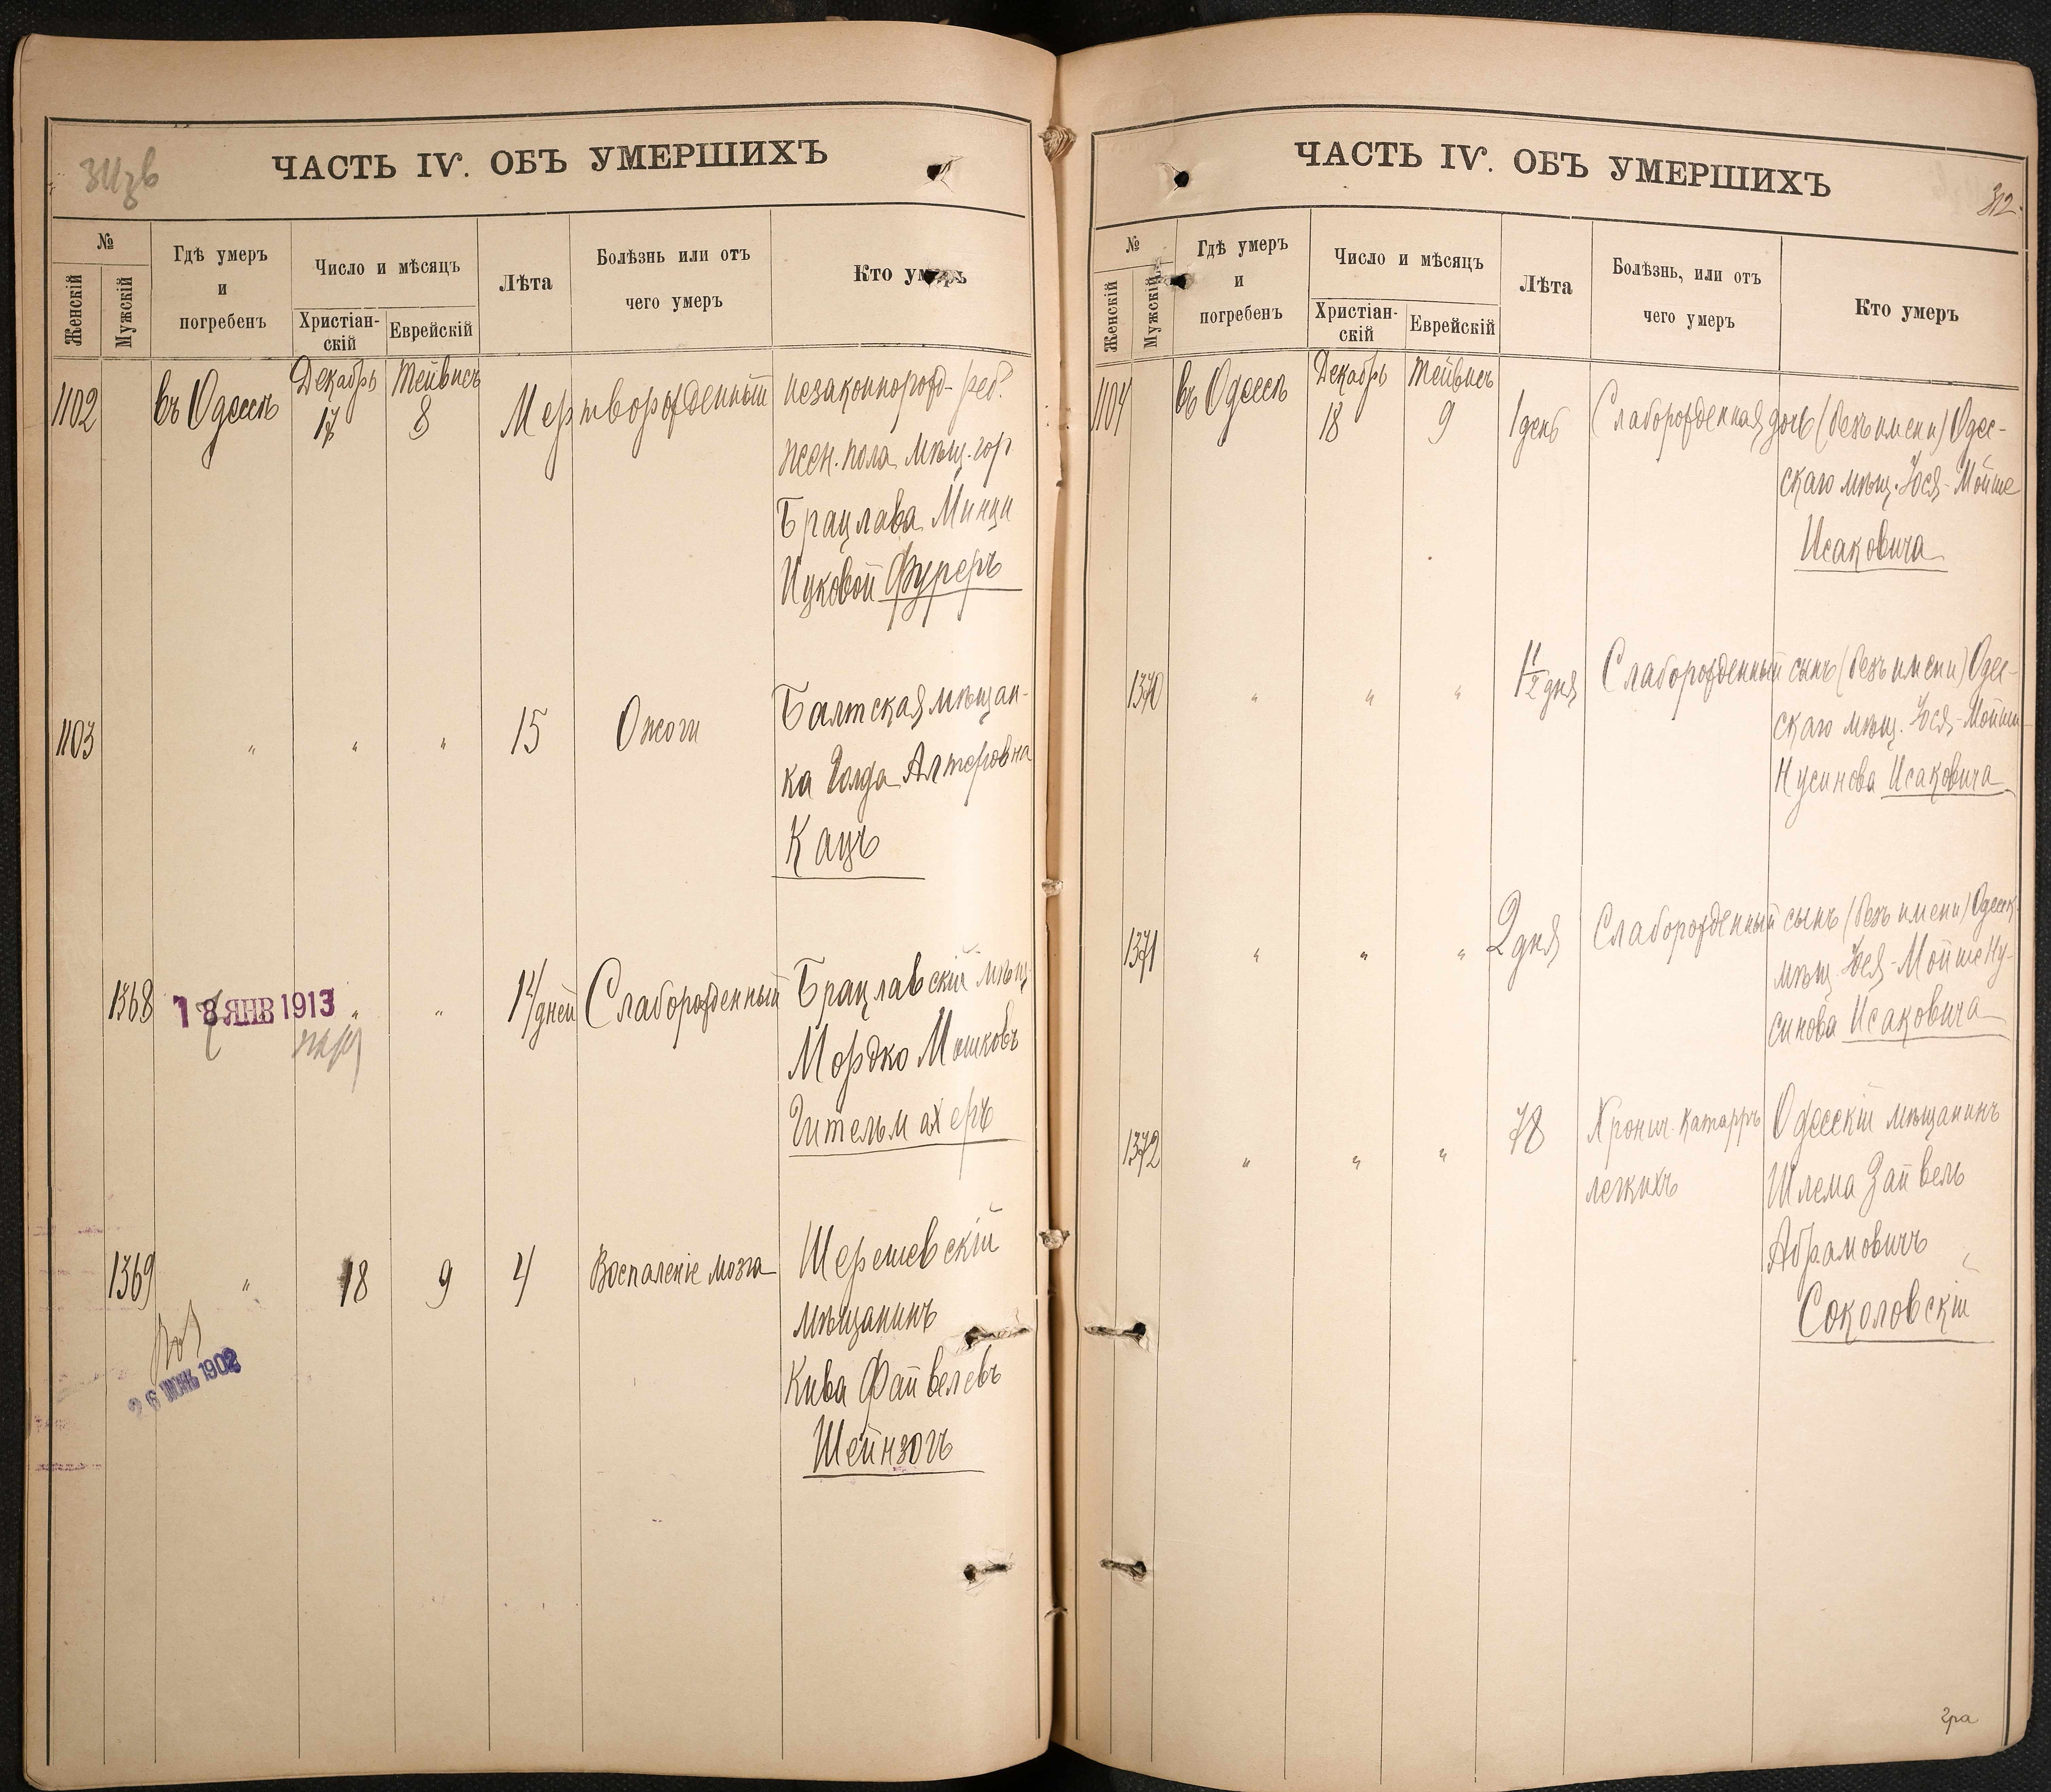 311 зв
ЧАСТЬ IV. ОБЪ УМЕРШИХЪ
№
Женскій
Мужскій
Гдѣ умеръ
и
погребенъ
Число и мѣсяцъ
Христіан-
скій
Еврейскій
Лѣта
Болѣзнь или отъ
чего умеръ
Кто умеръ
1102
въ Одессѣ
Декабрь
17
Тейвисъ
8
Мертворожденный
незаконнорожд- реб.
жен. пола мѣщ. гор
Брацлава Минци
Ицковой Фуреръ
1103
"
"
"
15
Ожоги
Балтская мѣщан-
ка Голда Алтеровна
Кацъ
1368
18 ЯНВ 1913
"
"
14 дней
Слаборожденный
Брацлавскій мѣщ.
Мордко Мошковъ
Гительмахеръ
1369
"
18
9
4
Воспаленіе мозга
Шерешевскій
мѣщанинъ
Кива Файвелевъ
Шейнзогъ
26 ИЮНЬ 1902
ЧАСТЬ IV. ОБЪ УМЕРШИХЪ
312.
№
Женскій
Мужскій
Гдѣ умеръ
и
погребенъ
Число и мѣсяцъ
Христіан-
скій
Еврейскій
Лѣта
Болѣзнь, или отъ
чего умеръ
Кто умеръ
1104
въ Одессѣ
Декабрь
18
Тейвисъ
9
1 день
Слаборожденная дочь (безъ имени) Одес-
скаго мѣщ. Іося-Мойше
Исаковича
1370
"
"
"
1 1/2 дня
Слаборожденный сынъ (безъ имени) Одес-
скаго мѣщ. Іося-Мойши
Нусинова Исаковича
1371
"
"
"
2 дня
Слаборожденный сынъ (безъ имени) Одесск.
мѣщ. Іося-Мойше Ну-
синова Исаковича
1372
"
"
"
78
Хронич. катарръ
легкихъ
Одесскій мѣщанинъ
Шлема Зайвель
Абрамовичъ
Соколовскій